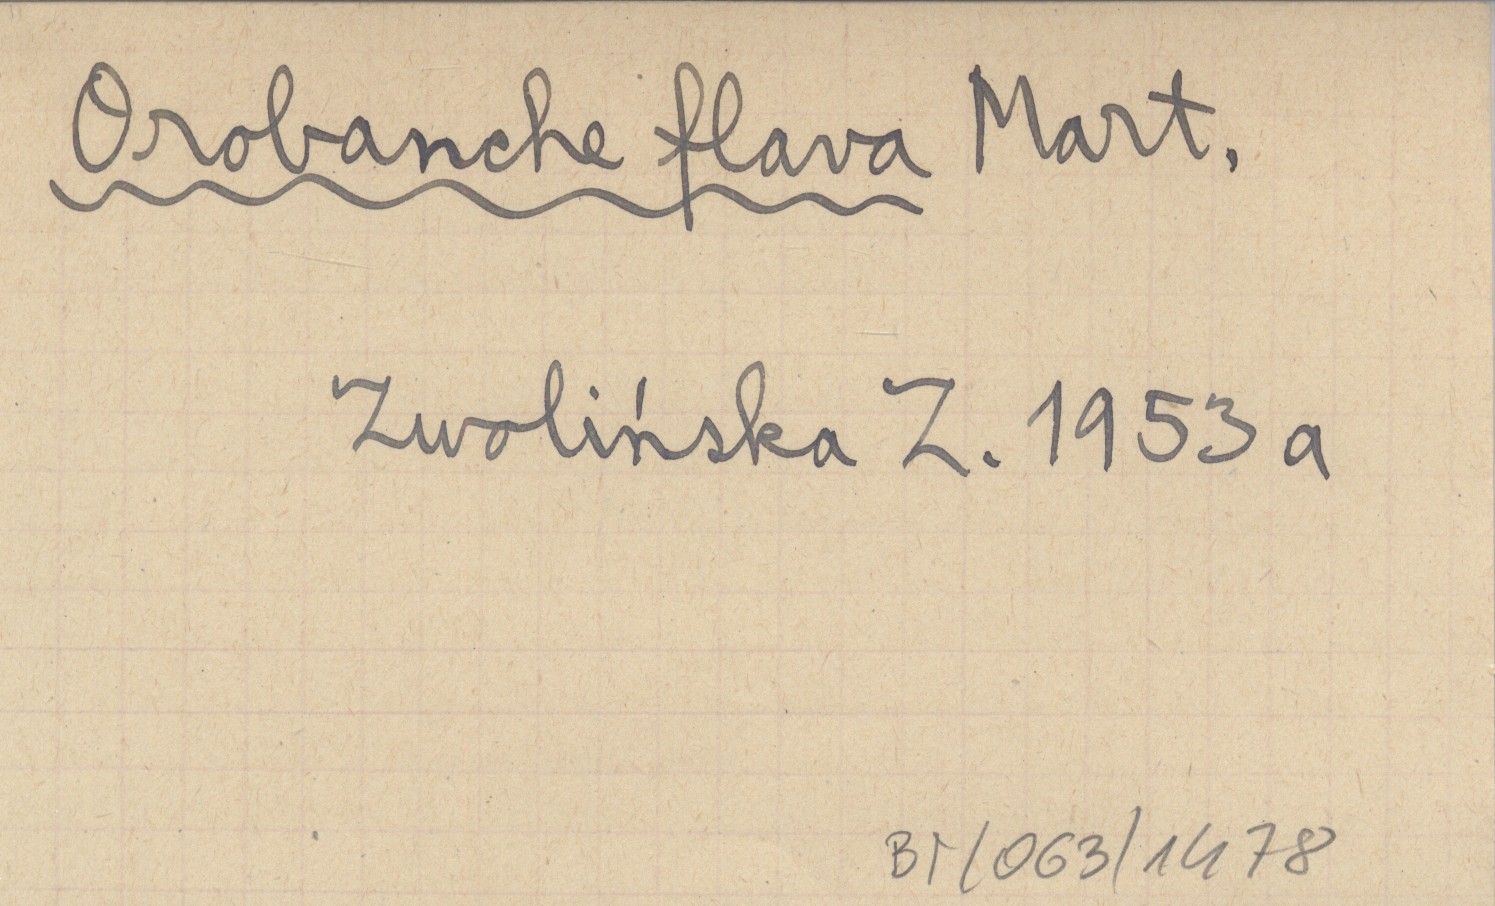 Orobanche flava Mart.
Zwolińska Z. 1953 a
BT/063/1478